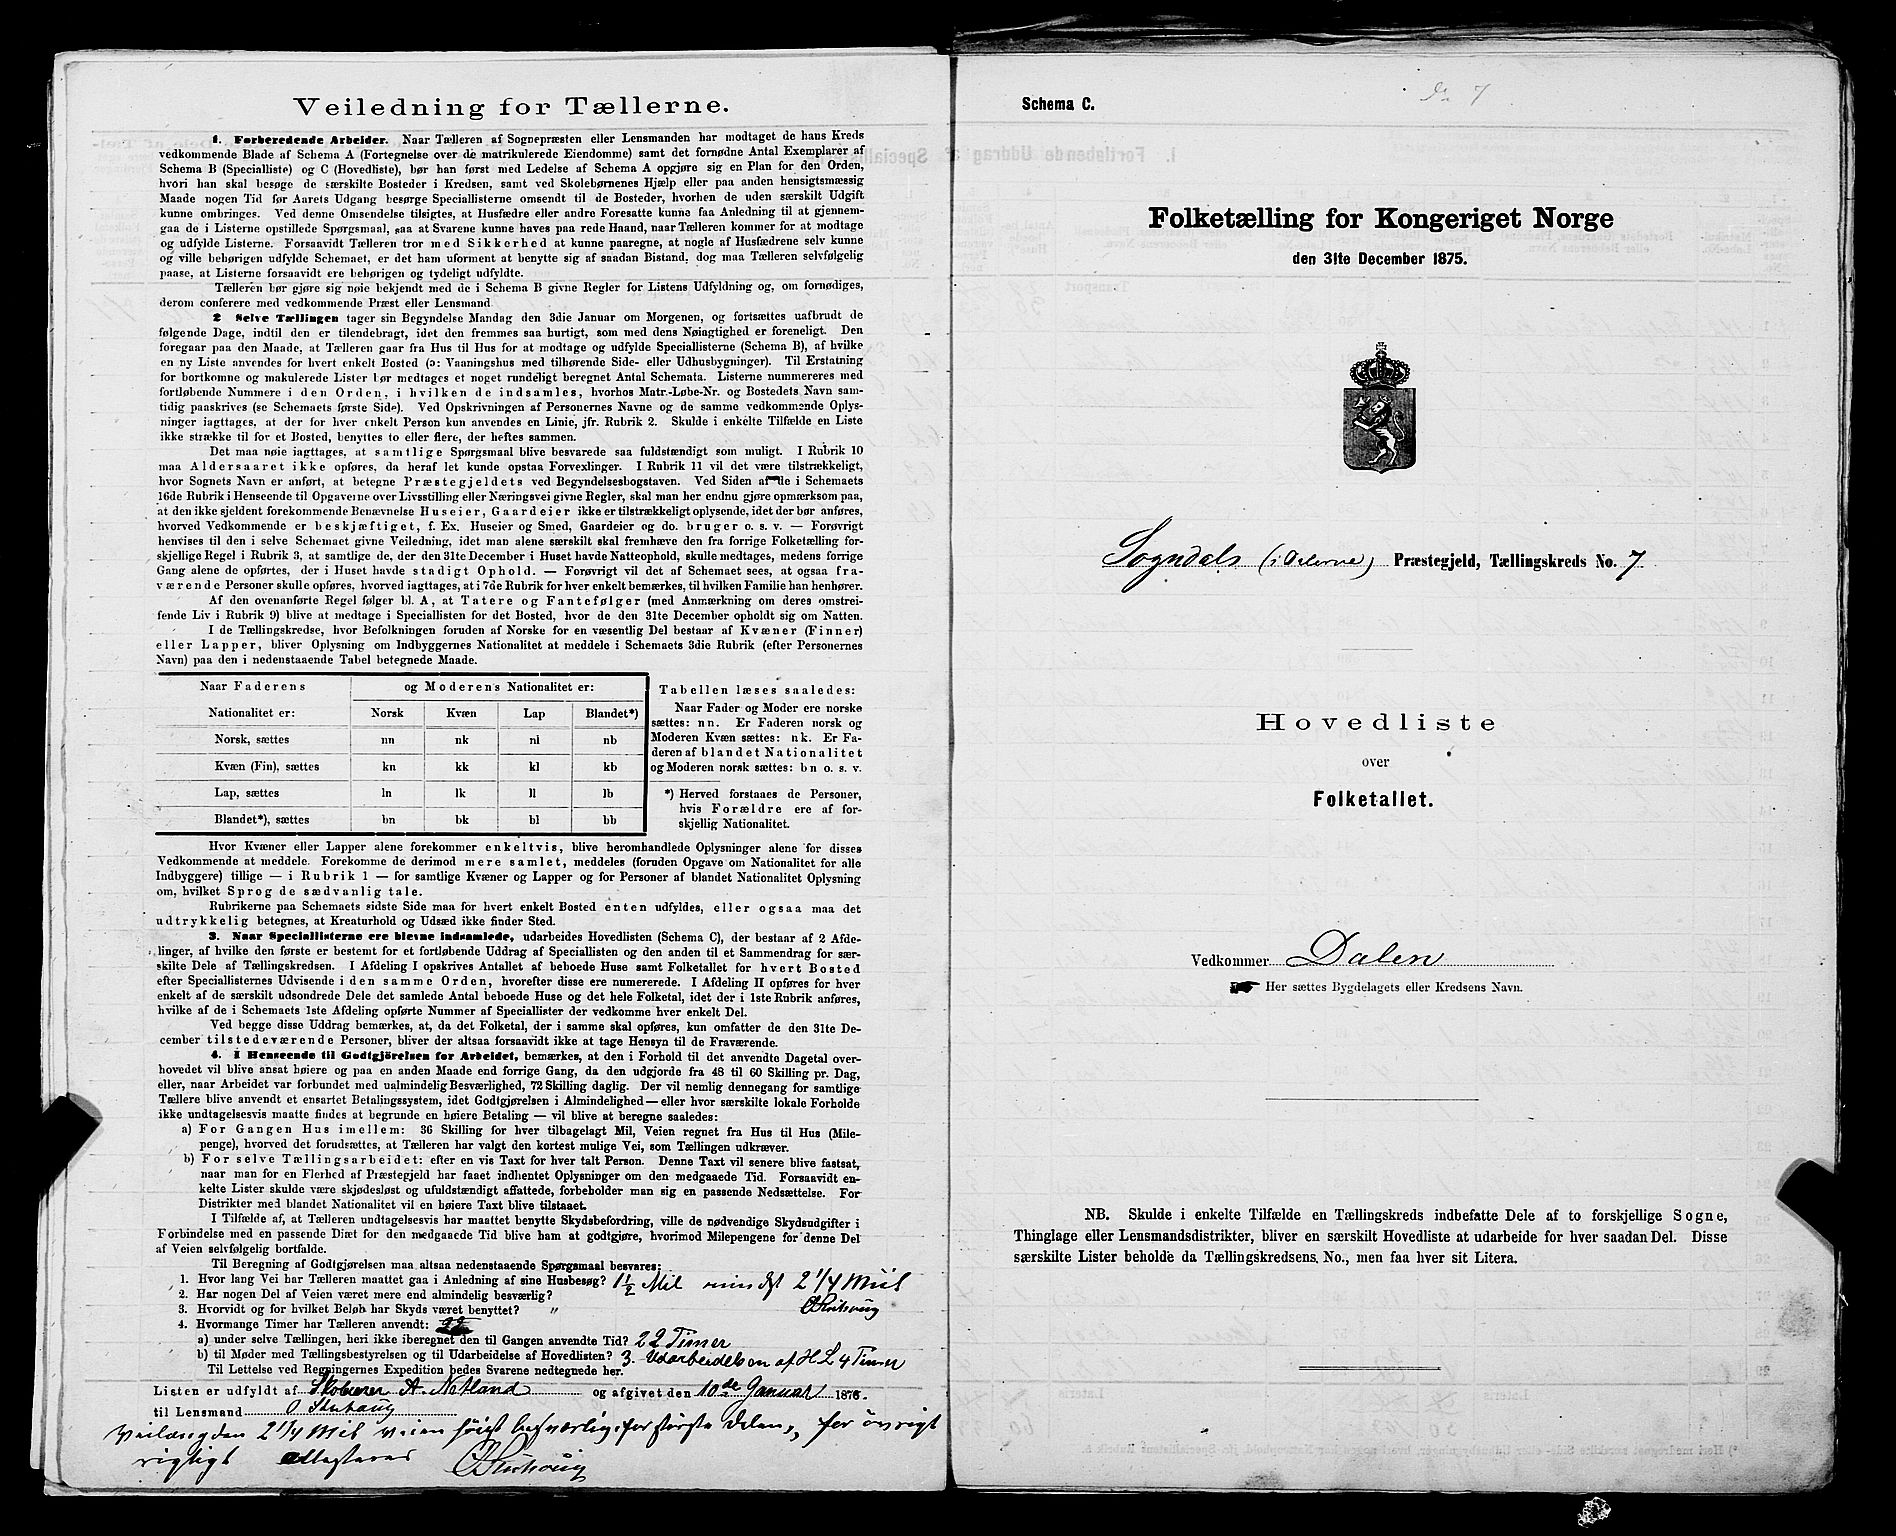 Veiledning for Tællerne.
1. Forberedende Arbeider. Naar Tælleren af Sognepræsten eller Lensmanden har modtaget de hans Kreds
vedkommende Blade af Schema A (Fortegnelse over de matrikulerede Eiendomme) samt det fornødne Antal Exemplarer af
Schema B (Specialliste) og C (Hovedliste), bør han først med Ledelse af Schema A opgjøre sig en Plan for den Orden,
hvori han skal besøge de særskilte Bosteder i Kredsen, samt ved Skolebørnenes Hjælp eller paa anden hensigtsmæssig
Maade nogen Tid før Aarets Udgang besørge Speciallisterne omsendt til de Bosteder, hvorhen de uden særskilt Udgift
kunne ombringes. Ved denne Omsendelse tilsigtes, at Husfædre eller andre Foresatte kunne faa Anledning til at gjennem-
gaa de i Listerne opstillede Spørgsmaal, saa at Svarene kunne haves paa rede Haand, naar Tælleren kommer for at modtage
og udfylde Listerne. Forsaavidt Tælleren tror med Sikkerhed at kunne paaregne, at nogle af Husfædrene selv kunne
og ville behørigen udfylde Schemaet, er det ham uforment at benytte sig af saadan Bistand, dog maa Tælleren selvfølgelig
paase, at Listerne forsaavidt ere behørigen og tydeligt udfyldte.
Tælleren bør gjøre sig nøie bekjendt med de i Schema B givne Regler for Listens Udfyldning og, om fornødiges,
derom conferere med vedkommende Præst eller Lensmand.
2 Selve Tællingen tager sin Begyndelse Mandag den 3die Januar om Morgenen, og fortsættes uafbrudt de
følgende Dage, indtil den er tilendebragt, idet den fremmes saa hurtigt, som med dens Nøiagtighed er foreneligt. Den
foregaar paa den Maade, at Tælleren gaar fra Hus til Hus for at modtage og udfylde Speciallisterne (Schema B), af hvilke
en ny Liste anvendes for hvert enkelt Bosted (ɔ: Vaaningshus med tilhørende Side- eller Udhusbygninger). Til Erstatning
for bortkomne og makulerede Lister bør medtages et noget rundeligt beregnet Antal Schemata. Listerne nummereres med
fortløbende Nummere i den Orden, i hvilken de indsamles, hvorhos Matr.-Løbe-Nr. og Bostedets Navn sam-
tidig paaskrives (se Schemaets første Side). Ved Opskrivningen af Personernes Navne og de samme vedkommende Oplys-
ninger iagttages, at der for hver enkelt Person kun anvendes en Linie, jfr. Rubrik 2. Skulde i enkelte Tilfælde en Liste
ikke strække til for et Bosted, benyttes to eller flere, der heftes sammen.
Det maa nøie iagttages, at samtlige Spørgsmaal blive besvarede saa fuldstændigt som muligt. I Rubrik 10
maa Aldersaaret ikke opføres, da heraf let kunde opstaa Forvexlinger. I Rubrik 11 vil det være tilstrækkeligt,
hvor Sognets Navn er anført, at betegne Præstegjeldets ved Begyndelsesbogstaven. Ved Siden af de i Schemaets
16de Rubrik i Henseende til Opgaverne over Livsstilling eller Næringsvei givne Regler, skal man her endnu gjøre opmærksom paa,
at den ikke sjeldent forekommende Benævnelse Huseier, Gaardeier ikke er tilstrækkeligt oplysende, idet der bør anføres,
hvorved Vedkommende er beskjæftiget, f. Ex. Huseier og Smed, Gaardeier og do. bruger o. s. v. — Forøvrigt
henvises til den i selve Schemaet givne Veiledning, idet man alene særskilt skal fremhæve den fra forrige Folketælling for-
skjellige Regel i Rubrik 3, at samtlige de, der den 31te December i Huset havde Natteophold, skulle medtages, medens forrige
Gang alene de opførtes, der i Huset havde stadigt Ophold. — Forøvrigt vil det af Schemaet sees, at ogsaa fra-
værende Personer skulle opføres, hvorved iagttages, at i 7de Rubrik for hver enkelt bemærkes, til hvilken Familie han henhører.
Af den ovenanførte Regel følger bl. A, at Tatere og Fantefølger (med Anmærkning om deres omstrei-
fende Liv i Rubrik 9) blive at medtage i Speciallisten for det Bosted, hvor de den 31te December opholdt sig om Natten.
I de Tællingskredse, hvor Befolkningen foruden af Norske for en væsentlig Del bestaar af Kvæner (Finner)
eller Lapper, bliver Oplysning om Indbyggernes Nationalitet at meddele i Schemaets 3die Rubrik (efter Personernes
Navn) paa den i nedenstaaende Tabel betegnede Maade.
Naar Faderens og Moderens Nationalitet er:
Nationalitet er: Norsk Kvæn Lap Blandet*)
Norsk, sættes nn nk nl nb
Kvæn (Fin), sættes kn kk kl kb
Lap, sættes ln lk ll lb
Blandet*), sættes bn bk bl bb
Tabellen læses saaledes:
Naar Fader og Moder ere norske
sættes: nn. Er Faderen norsk og
Moderen Kvæn sættes: nk. Er Fa-
deren af blandet Nationalitet
og Moderen norsk sættes: bn o. s. v.
*) Herved forstaaes de Personer,
hvis Forældre ere af for-
skjellig Nationalitet.
Hvor Kvæner eller Lapper alene forekommer enkeltvis, blive heromhandlede Oplysninger alene for disses
Vedkommende at meddele. Forekomme de derimod mere samlet, meddeles (foruden Opgave om Nationalitet for alle
Indbyggere) tillige — i Rubrik 1 — for samtlige Kvæner og Lapper og for Personer af blandet Nationalitet Oplysning
om, hvilket Sprog de sædvanlig tale.
Rubrikerne paa Schemaets sidste Side maa for hvert enkelt Bosted enten udfyldes, eller ogsaa maa det
udtrykkelig betegnes, at Kreaturhold og Udsæd ikke finder Sted.
3. Naar Speciallisterne ere blevne indsamlede, udarbeides Hovedlisten (Schema C), der bestaar af 2 Afde-
linger, af hvilke den første er bestemt for et fortløbende Uddrag af Speciallisten og den anden til et Sammendrag for sær-
skilte Dele af Tællingskredsen. I Afdeling I opskrives Antallet af beboede Huse samt Folketallet for hvert Bosted
efter Speciallisternes Udvisende i den samme Orden, hvorefter disse ere numererede. I Afdeling II opføres for hver
enkelt af de særskilt udsondrede Dele det samlede Antal beboede Huse og det hele Folketal, idet der i 1ste Rubrik anføres,
hvilke af de i Schemaets 1ste Afdeling opførte Nummer af Speciallister der vedkomme hver enkelt Del.
Ved begge disse Uddrag bemærkes, at, da det Folketal, der i samme skal opføres, kun omfatter de den 31te De-
cember tilstedeværende Personer, bliver der altsaa forsaavidt ikke at tage Hensyn til de Fraværende.
4. I Henseende til Godtgjörelsen for Arbeidet, bemærkes, at den i Forhold til det anvendte Dagetal over-
hovedet vil blive ansat høiere og paa en anden Maade end forrige Gang, da den udgjorde fra 48 til 60 Skilling pr. Dag,
eller, naar Arbeidet var forbundet med ualmindelig Besværlighed, 72 Skilling daglig. Der vil nemlig dennegang for samtlige
Tællere blive anvendt et ensartet Betalingssystem, idet Godtgjørelsen i Almindelighed — eller hvor særskilte lokale Forholde
ikke undtagelsesvis maatte findes at begrunde en høiere Betaling — vil blive at beregne saaledes:
a) For Gangen Hus imellem: 36 Skilling for hver tilbagelagt Mil, Veien regnet fra Hus til Hus (Mile-
penge), hvorved det forudsættes, at Tælleren har valgt den kortest mulige Vei, som Tællingen udkræver.
b) For selve Tællingsarbeidet: efter en vis Taxt for hver talt Person. Denne Taxt vil senere blive fastsat,
naar man for en Flerhed af Præstegjeld har faaet indhentet Oplysninger om den medgaaede Tid. Forsaavidt en-
kelte Lister skulde være skjødesløst og ufuldstændigt affattede, forbeholder man sig en passende Nedsættelse. For
Distrikter med blandet Nationalitet vil en høiere Taxt blive tilstaaet.
I Tilfælde af, at Tælleren undtagelsesvis har maattet benytte Skydsbefordring, ville de nødvendige Skydsudgifter i
Forbindelse med en passende Diæt for den medgaaede Tid blive ham at godtgjøre, hvorimod Milepengene for denne Del
af Veien selvfølgelig bortfalde.
Til Beregning af Godtgjørelsen maa altsaa nedenstaaende Spørgsmaal besvares:
1. Hvor lang Vei har Tælleren maattet gaa i Anledning af sine Husbesøg? 1½ Mil mindst 2 1/4 Miil
2. Har nogen Del af Veien været mere end almindelig besværlig?
3. Hvorvidt og for hvilket Beløb har Skyds været benyttet? "
4. Hvormange Timer har Tælleren anvendt: 22
a) under selve Tællingen, heri ikke iberegnet den til Gangen anvendte Tid? 22 Timer
b) til Møder med Tællingsbestyrelsen og til Udarbeidelse af Hovedlisten? 3. Udarbeidelsen af H L 4 Timer
Til Lettelse ved Regningernes Expedition bedes Svarene nedtegnede her.
Listen er udfyldt af A. Netland og afgivet den 10de Januar 1876.
til Lensmand
Veilængden 2 1/4 Mil veien høist besværlig for største delen, for övrigt
rigtigt attesteres
Schema C.
7
Folketælling for Kongeriget Norge
den 31te December 1875.
Sogndals (i Dalerne) Præstegjeld, Tællingskreds No. 7
Hovedliste
over
Folketallet.
Vedkommer Dalen
Her sættes Bygdelagets eller Kredsens Navn.
NB. Skulde i enkelte Tilfælde en Tællingskreds indbefatte Dele af to forskjellige Sogne,
Thinglage eller Lensmandsdistrikter, bliver en særskilt Hovedliste at udarbeide for hver saadan Del. Disse
særskilte Lister beholde da Tællingskredsens No., men faa hver sit Litera.